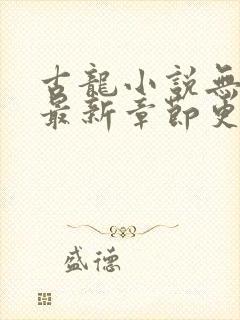 古龍小說無
最新章節更
盛德